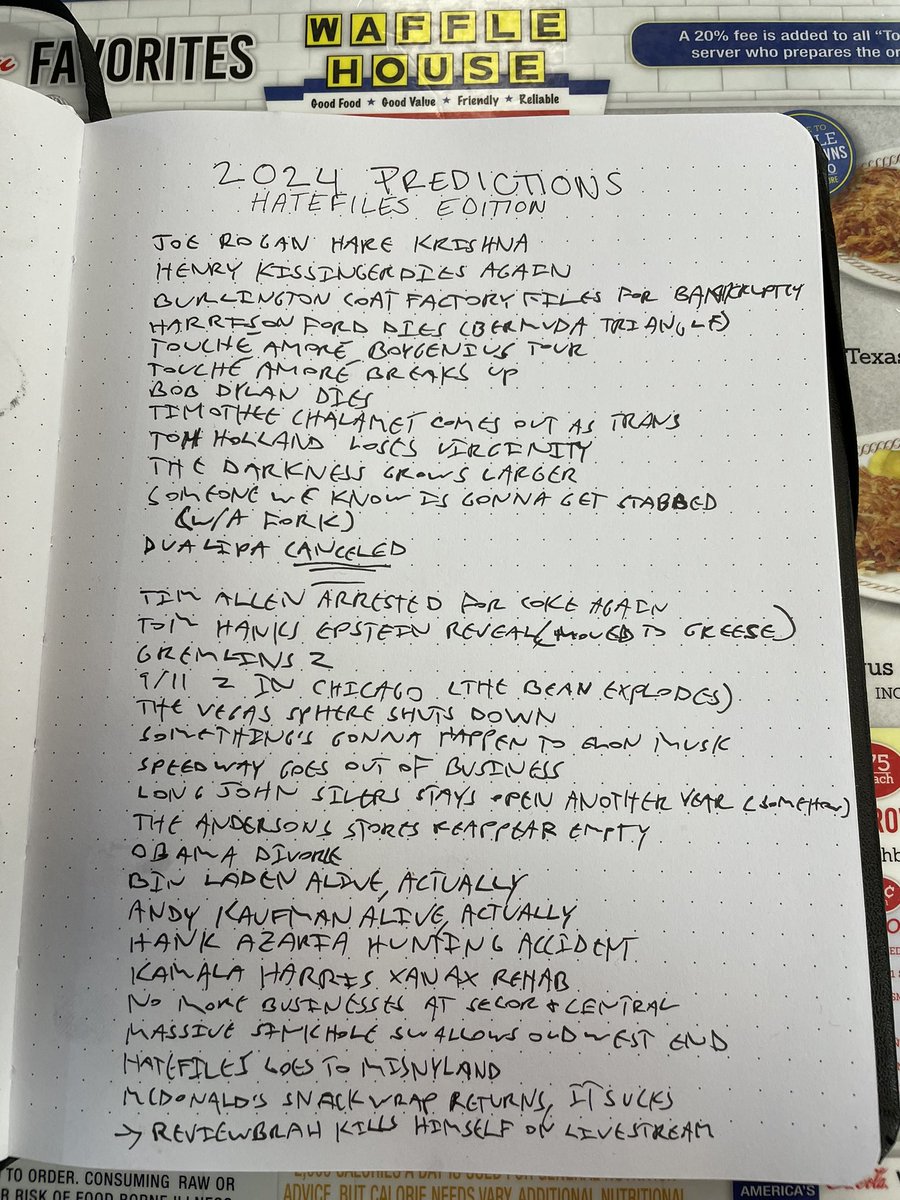 FAVORITES
WAFFLE
HOUSE
Good Food ★ Good Value ★ Friendly ★ Reliable
A 20% fee is added to all "To
server who prepares the or
2024 PREDICTIONS
HATEFILES EDITION
JOE ROGAN HARE KRISHNA
HENRY KISSINGER DIES AGAIN
BURLINGTON COAT FACTORY FILES FOR BANKRUPTCY
HARRISON FORD DIES (BERMUDA TRIANGLE)
TOUCHE AMORE BOYGENIUS TOUR
TOUCHE AMORE BREAKS UP
BOB DYLAN DIES
TIMOTHEE CHALAMET COMES OUT AS TRANS
TOM HOLLAND LOSES VIRGINITY
THE DARKNESS GROWS LARGER
SOMEONE WE KNOW IS GONNA GET STABBED
(W/A FORK)
DUA LIPA CANCELED
TIM ALLEN ARRESTED FOR COKE AGAIN
TOM HANKS EPSTEIN REVEAL (MOVED TO GREESE)
GREMLINS 2
9/11 2 IN CHICAGO (THE BEAN EXPLODES)
THE VEGAS SPHERE SHUTS DOWN
SOMETHING'S GONNA HAPPEN TO ELON MUSK
SPEEDWAY GOES OUT OF BUSINESS
LONG JOHN SILERS STAYS OPEN ANOTHER YEAR (SOMEHOW)
THE ANDERSONS STORES REAPPEAR EMPTY
OBAMA DIVORCE
BIN LADEN ALIVE, ACTUALLY
ANDY KAUFMAN ALIVE, ACTUALLY
HANK AZARIA HUNTING ACCIDENT
KAMALA HARRIS XANAX REHAB
NO MORE BUSINESSES AT SECOR & CENTRAL
MASSIVE SINKHOLE SWALLOWS OLD WEST END
HATEFILES GOES TO MISNYLAND
MCDONALD'S SNACK WRAP RETURNS, IT SUCKS
→ REVIEWBRAH KILLS HIMSELF ON LIVESTREAM
Texas
75
ach
TO ORDER. CONSUMING RAW OR
ADVICE, BUT CALORIE NEEDS VARY. ADDITIONAL NUTRITIONAL
AMERICA'S